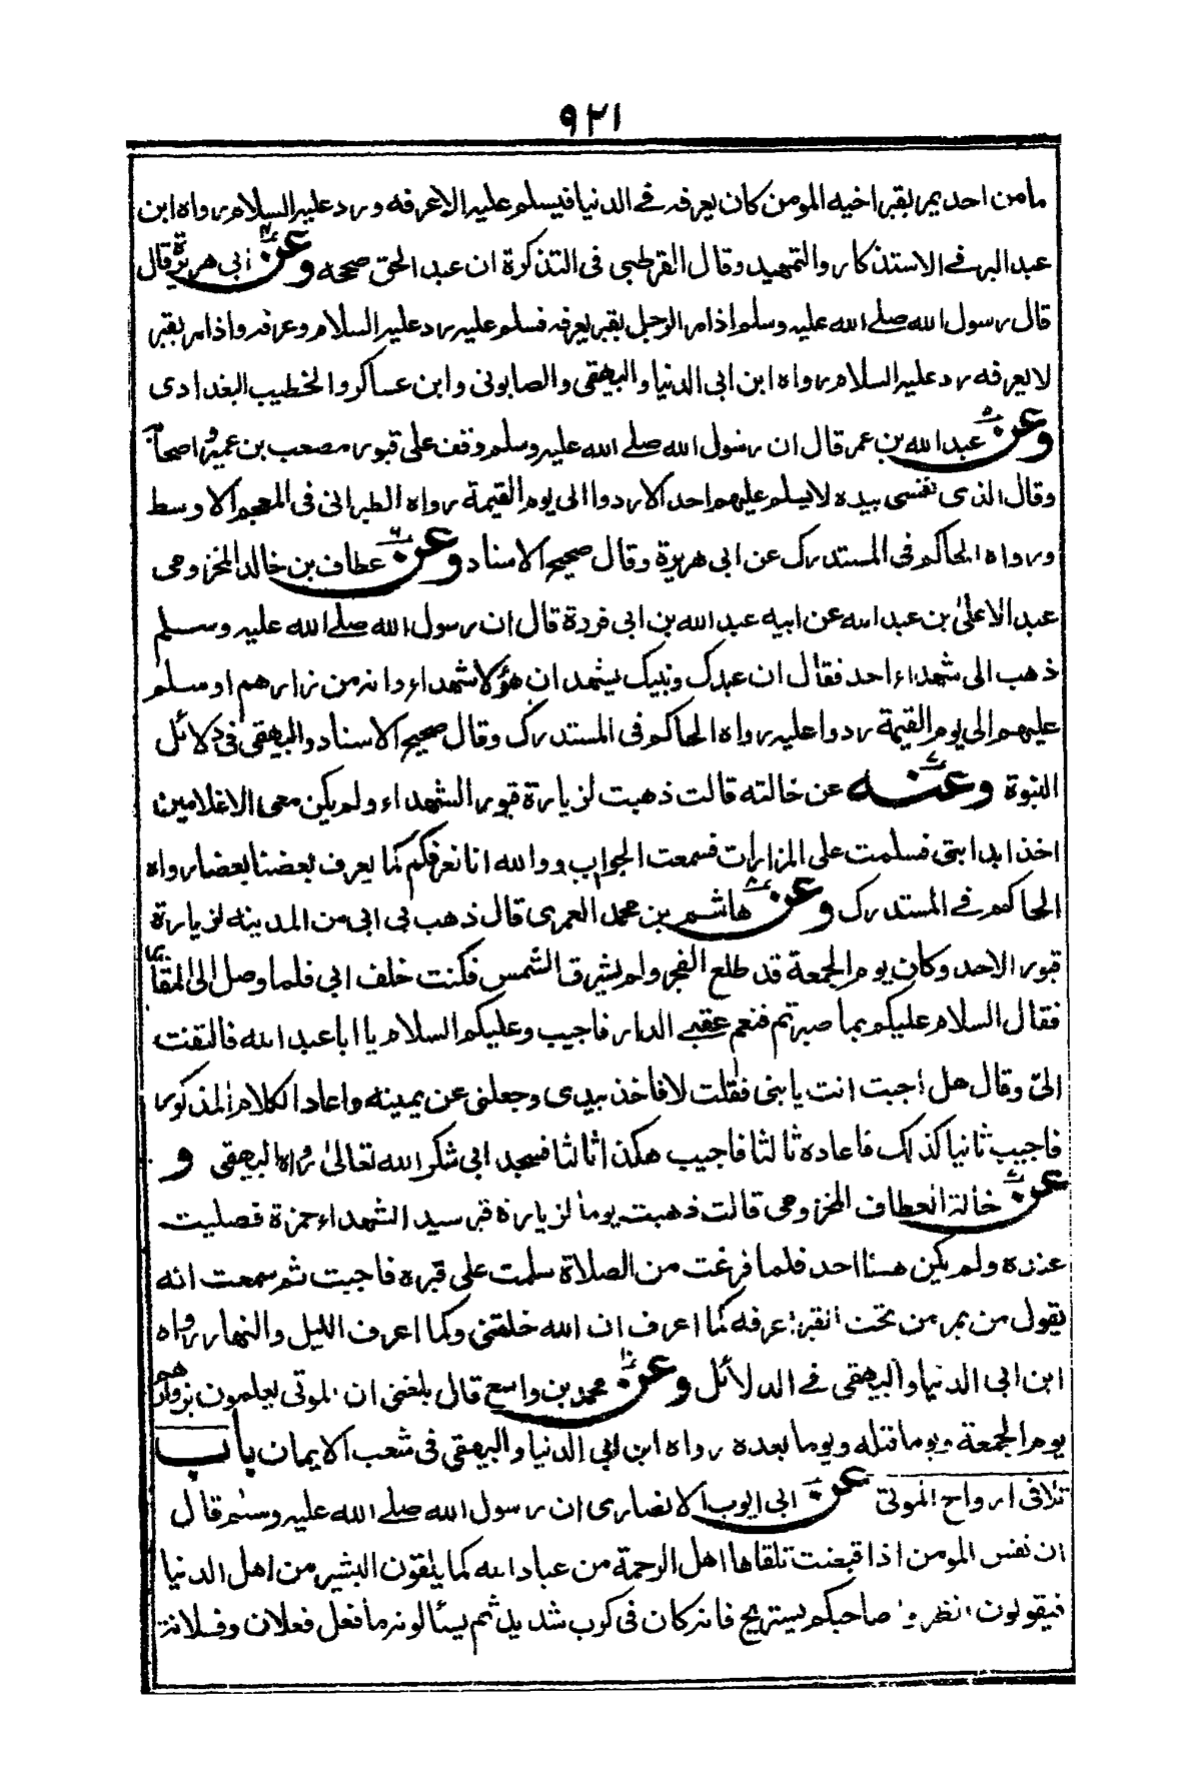 ٩٢١
مامن احد يمر بقبر اخيه المومن كان يعرفه فے الدنيا فيسلم عليه الا عرفه ورد عليه السلام رواه ابن
عبد البر فے الاستذكار والتمهيد وقال القرطبى فى التذكرة ان عبد الحق صححه وعن ابى هريرة قال
قال رسول الله صلے الله عليه وسلم اذا مر الرجل بقبر يعرفه فسلم عليه رد عليه السلام وعرفه واذا مر بقبر
لا يعرفه رد عليه السلام رواه ابن ابى الدنيا والبيهقى والصابونى وابن عساكر والخطيب البغدادى
وعن عبد الله بن عمر قال ان رسول الله صلے الله عليه وسلم وقف على قبور مصعب بن عمير واصحابه
وقال الذى نفسى بيده لا يسلم عليهم احد الا ردوا الى يوم القيمة رواه الطبرانى فى المعجم الاوسط
ورواه الحاكم فى المستدرك عن ابى هريرة وقال صحيح الاسناد وعن عطاف بن خالد المخزومى
عبد الاعلىٰ بن عبد الله عن ابيه عبد الله بن ابى فردة قال ان رسول الله صلے الله عليه وسلم
ذهب الى شهداء احد فقال ان عبدك ونبيك يشهد ان هؤلا شهداء وانه من زارهم او سلم
عليهم الى يوم القيمة ردوا عليه رواه الحاكم فى المستدرك وقال صحيح الاسناد والبيهقى فى دلائل
النبوة وعنه عن خالته قالت ذهبت لزيارة قبور الشهداء ولم يكن معى الا غلامين
اخذا بدابتى فسلمت على المزارات فسمعت الجواب ووالله انا نعرفكم كما يعرف بعضنا بعضا رواه
الحاكم فے المستدرك وعن هاشم بن محمد العمرى قال ذهب بى ابى من المدينه لزيارة
قبور الاحد وكان يوم الجمعة قد طلع الفجر ولم يشرق الشمس فكنت خلف ابى فلما وصل الى المقابر
فقال السلام عليكم بما صبرتم فنعم عقبے الدار فاجيب وعليكم السلام يا ابا عبد الله فالتفت
الىّ وقال هل اجبت انت يا بنى فقلت لا فاخذ بيدى وجعلنى عن يمينه واعاد الكلام المذكور
فاجيب ثانيا كذلك فاعاده ثالثا فاجيب هكذا ثالثا فسجد ابى شكر الله تعالىٰ رواه البيهقى و
عن خالة العطاف المخزومى قالت ذهبت يوما لزيارة قبر سيد الشهداء حمزة فصليت
عنده ولم يكن هنا احد فلما فرغت من الصلاة سلمت على قبره فاجيت ثم سمعت انه
يقول من يمر من تحت القبر اعرفه كما اعرف ان الله خلقنى وكما اعرف الليل والنهار رواه
ابن ابى الدنيا والبيهقى فے الدلائل وعن محمد بن واسع قال بلغنى ان الموتى يعلمون بزوارهم
يوم الجمعة ويوما قبله ويوما بعده رواه ابن ابى الدنيا والبيهقى فى شعب الايمان باب
تلاقى ارواح الموتى عن ابى ايوب الانصارى ان رسول الله صلے الله عليه وسلم قال
ان نفس المومن اذا قبضت تلقاها اهل الرحمة من عباد الله كما يلقون البشير من اهل الدنيا
فيقولون انظروا صاحبكم يستريح فانه كان فى كرب شديد ثم يسألونه ما فعل فعلان وفلانة